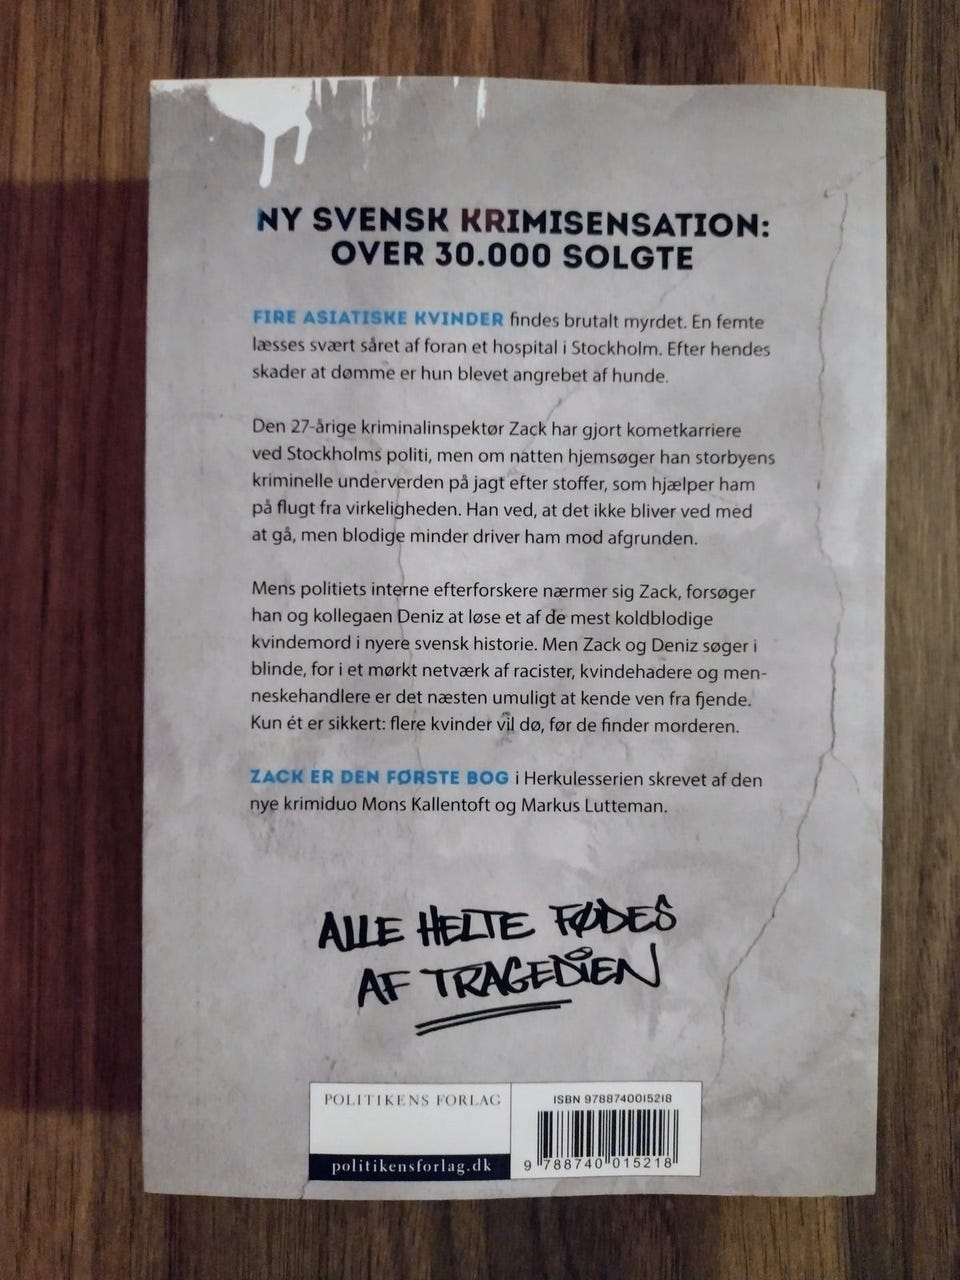 NY SVENSK KRIMISENSATION:
OVER 30.000 SOLGTE
FIRE ASIATISKE KVINDER findes brutalt myrdet. En femte
læsses svært såret af foran et hospital i Stockholm. Efter hendes
skader at dømme er hun blevet angrebet af hunde.
Den 27-årige kriminalinspektør Zack har gjort kometkarriere
ved Stockholms politi, men om natten hjemsøger han storbyens
kriminelle underverden på jagt efter stoffer, som hjælper ham
på flugt fra virkeligheden. Han ved, at det ikke bliver ved med
at gå, men blodige minder driver ham mod afgrunden.
Mens politiets interne efterforskere nærmer sig Zack, forsøger
han og kollegaen Deniz at løse et af de mest koldblodige
kvindemord i nyere svensk historie. Men Zack og Deniz søger i
blinde, for i et mørkt netværk af racister, kvindehadere og men-
neskehandlere er det næsten umuligt at kende ven fra fjende.
Kun ét er sikkert: flere kvinder vil dø, før de finder morderen.
ZACK ER DEN FØRSTE BOG i Herkulesserien skrevet af den
nye krimiduo Mons Kallentoft og Markus Lutteman.
ALLE HELTE FØDES
AF TRAGEDIEN
POLITIKENS FORLAG
politikensforlag.dk
ISBN 9788740015218
9 788740 015218